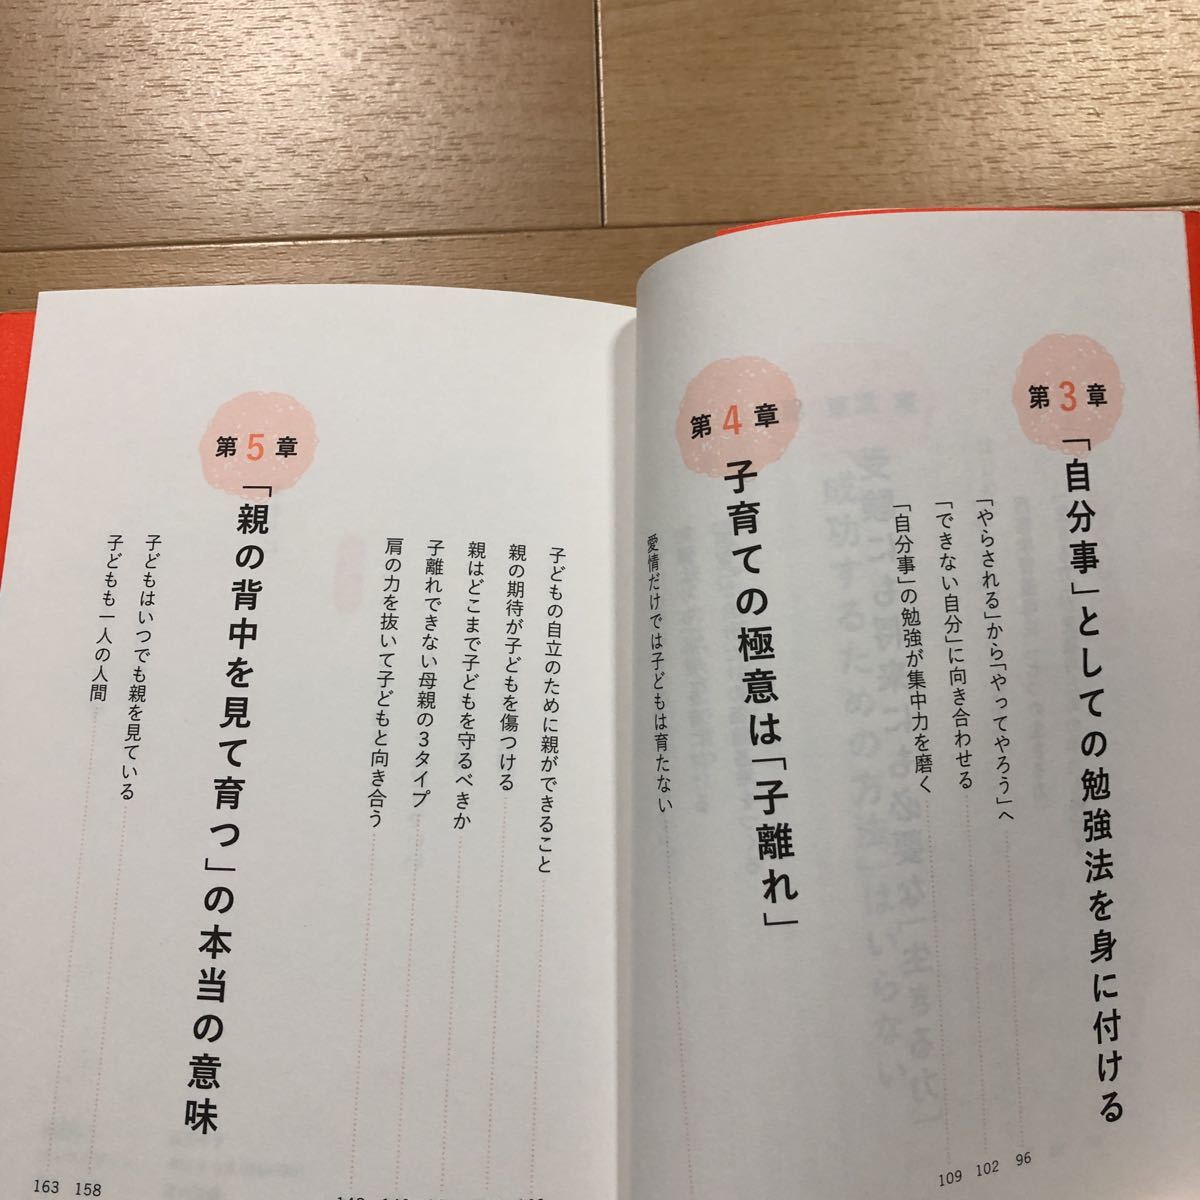 第3章
「自分事」としての勉強法を身に付ける
「やらされる」から「やってやろう」へ 96
「できない自分」に向き合わせる 102
「自分事」の勉強が集中力を磨く 109
第4章
子育ての極意は「子離れ」
愛情だけでは子どもは育たない
子どもの自立のために親ができること
親の期待が子どもを傷つける
親はどこまで子どもを守るべきか
子離れできない母親の3タイプ
肩の力を抜いて子どもと向き合う
第5章
「親の背中を見て育つ」の本当の意味
子どもはいつでも親を見ている 158
子どもも一人の人間 163